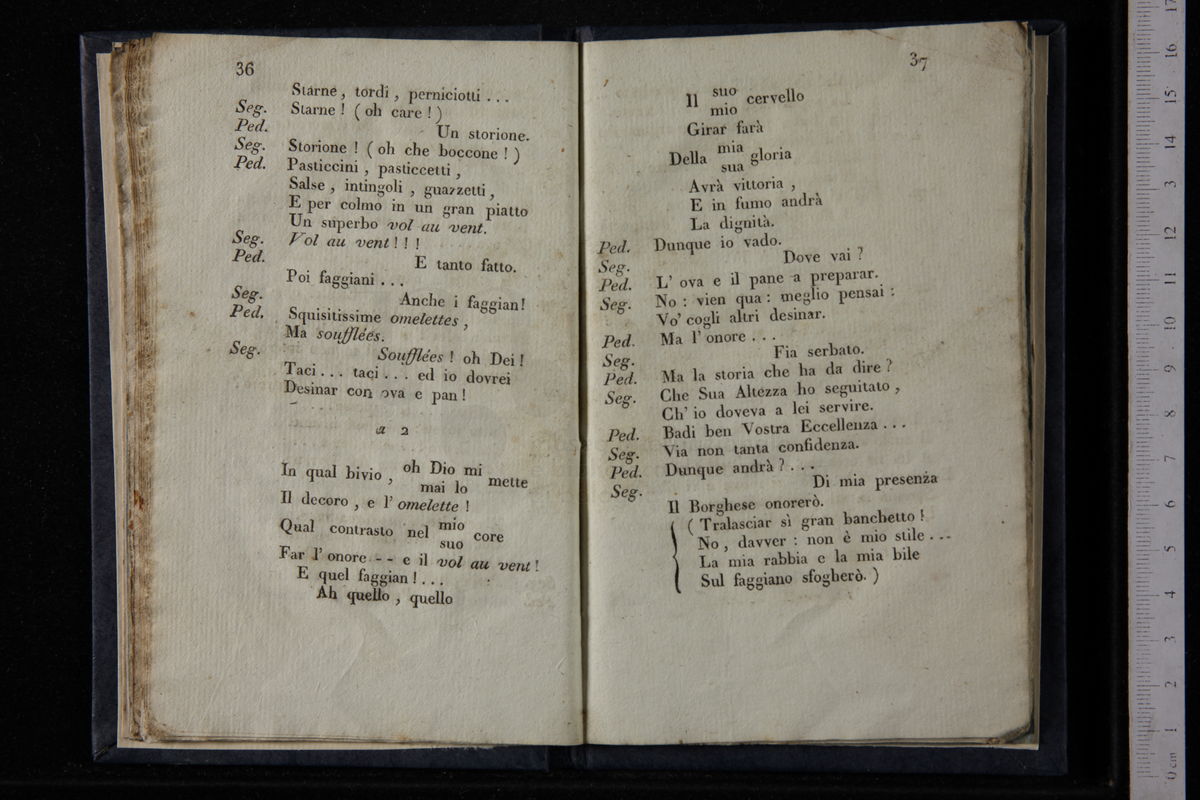 36
Starne, tordi, perniciotti...
Seg. Starne! (oh care!)
Ped. Un storione.
Seg. Storione! (oh che boccone!)
Ped. Pasticcini, pasticcetti,
Salse, intingoli, guazzetti,
E per colmo in un gran piatto
Un superbo vol au vent.
Seg. Vol au vent!!!
Ped. E tanto fatto.
Poi faggiani...
Seg. Anche i faggian!
Ped. Squisitissime omelettes,
Ma soufflées.
Seg. Soufflées! oh Dei!
Taci... taci... ed io dovrei
Desinar con ova e pan!
a 2
In qual bivio, oh Dio mi mette
mai lo
Il decoro, e l'omelette!
Qual contrasto nel mio core
suo
Far l'onore -- e il vol au vent!
E quel faggian!...
Ah quello, quello
37
Il suo cervello
mio
Girar farà
Della mia gloria
sua
Avrà vittoria,
E in fumo andrà
La dignità.
Ped. Dunque io vado.
Seg. Dove vai?
Ped. L'ova e il pane a preparar.
Seg. No: vien qua: meglio pensai:
Vo' cogli altri desinar.
Ped. Ma l'onore...
Seg. Fia serbato.
Ped. Ma la storia che ha da dire?
Seg. Che Sua Altezza ho seguitato,
Ch'io doveva a lei servire.
Ped. Badi ben Vostra Eccellenza...
Seg. Via non tanta confidenza.
Ped. Dunque andrà?...
Seg. Di mia presenza
Il Borghese onorerò.
(Tralasciar sì gran banchetto!
No, davver: non è mio stile...
La mia rabbia e la mia bile
Sul faggiano sfogherò.)
17
16
15
14
13
12
11
10
9
8
7
6
5
4
3
2
1
0 cm